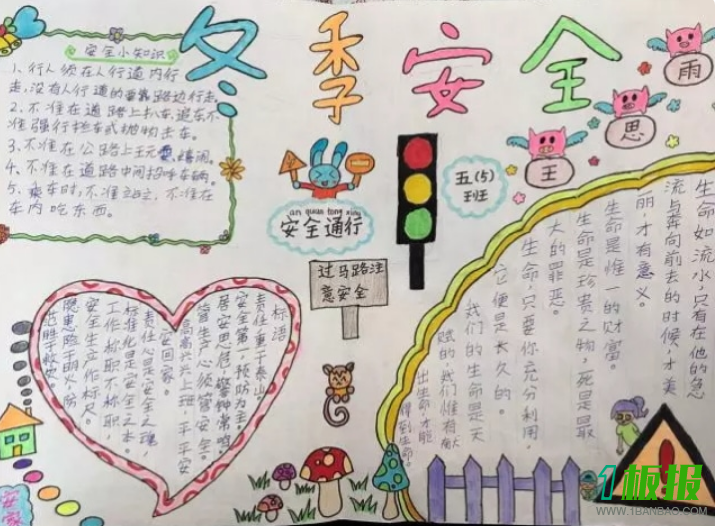 冬季安全
安全小知识
1、行人须在人行道内行
走,没有人行道的靠路边行走。
2、不准在道路上扒车、追车不
准强行拦车或抛物击车。
3、不准在公路上玩嬉闹。
4、不准在道路中间招呼车辆。
5、乘车时,不准站立,不准在
车内吃东西。
an quan tong xing
安全通行
五(5)
班
王
思
雨
过马路注
意安全
标语
责任重于泰山。
安全第一预防为主。
居安思危,警钟常鸣。
管生产必须管安全。
高高兴兴上班,平平安
安回家。
责任心是安全之魂,
标准化是安全之本。
工作称职不称职,
安全生产作标尺。
隐患险于明火,防
范胜于救灾。
生命如流水,只有在他的急
流与奔向前去的时候,才美
丽,才有意义。
生命是惟一的财富。
生命是珍贵之物,死是最
大的罪恶。
生命,只要你充分利用,
它便是长久的。
我们的生命是天
赋的,我们惟有献
出生命,才能
得到生命。
1板报
WWW.1BANBAO.COM